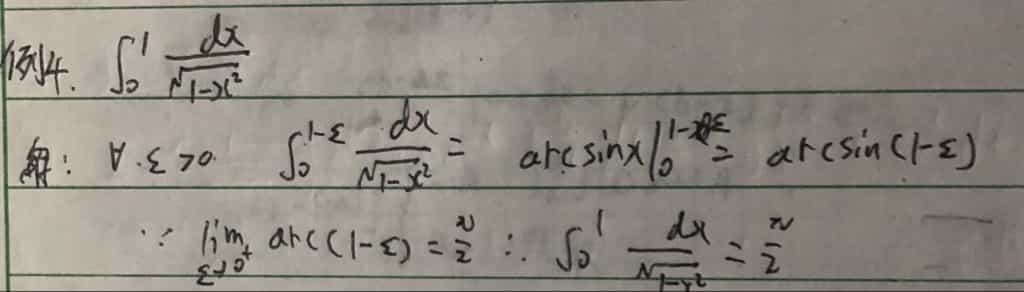 例4. ∫₀¹ dx/√(1-x²)
解: ∀·ε>0. ∫₀^(1-ε) dx/√(1-x²) = arcsinx|₀^(1-ε) = arcsin(1-ε)
∵ lim_(ε→0⁺) arc(1-ε) = π/2 ∴ ∫₀¹ dx/√(1-x²) = π/2